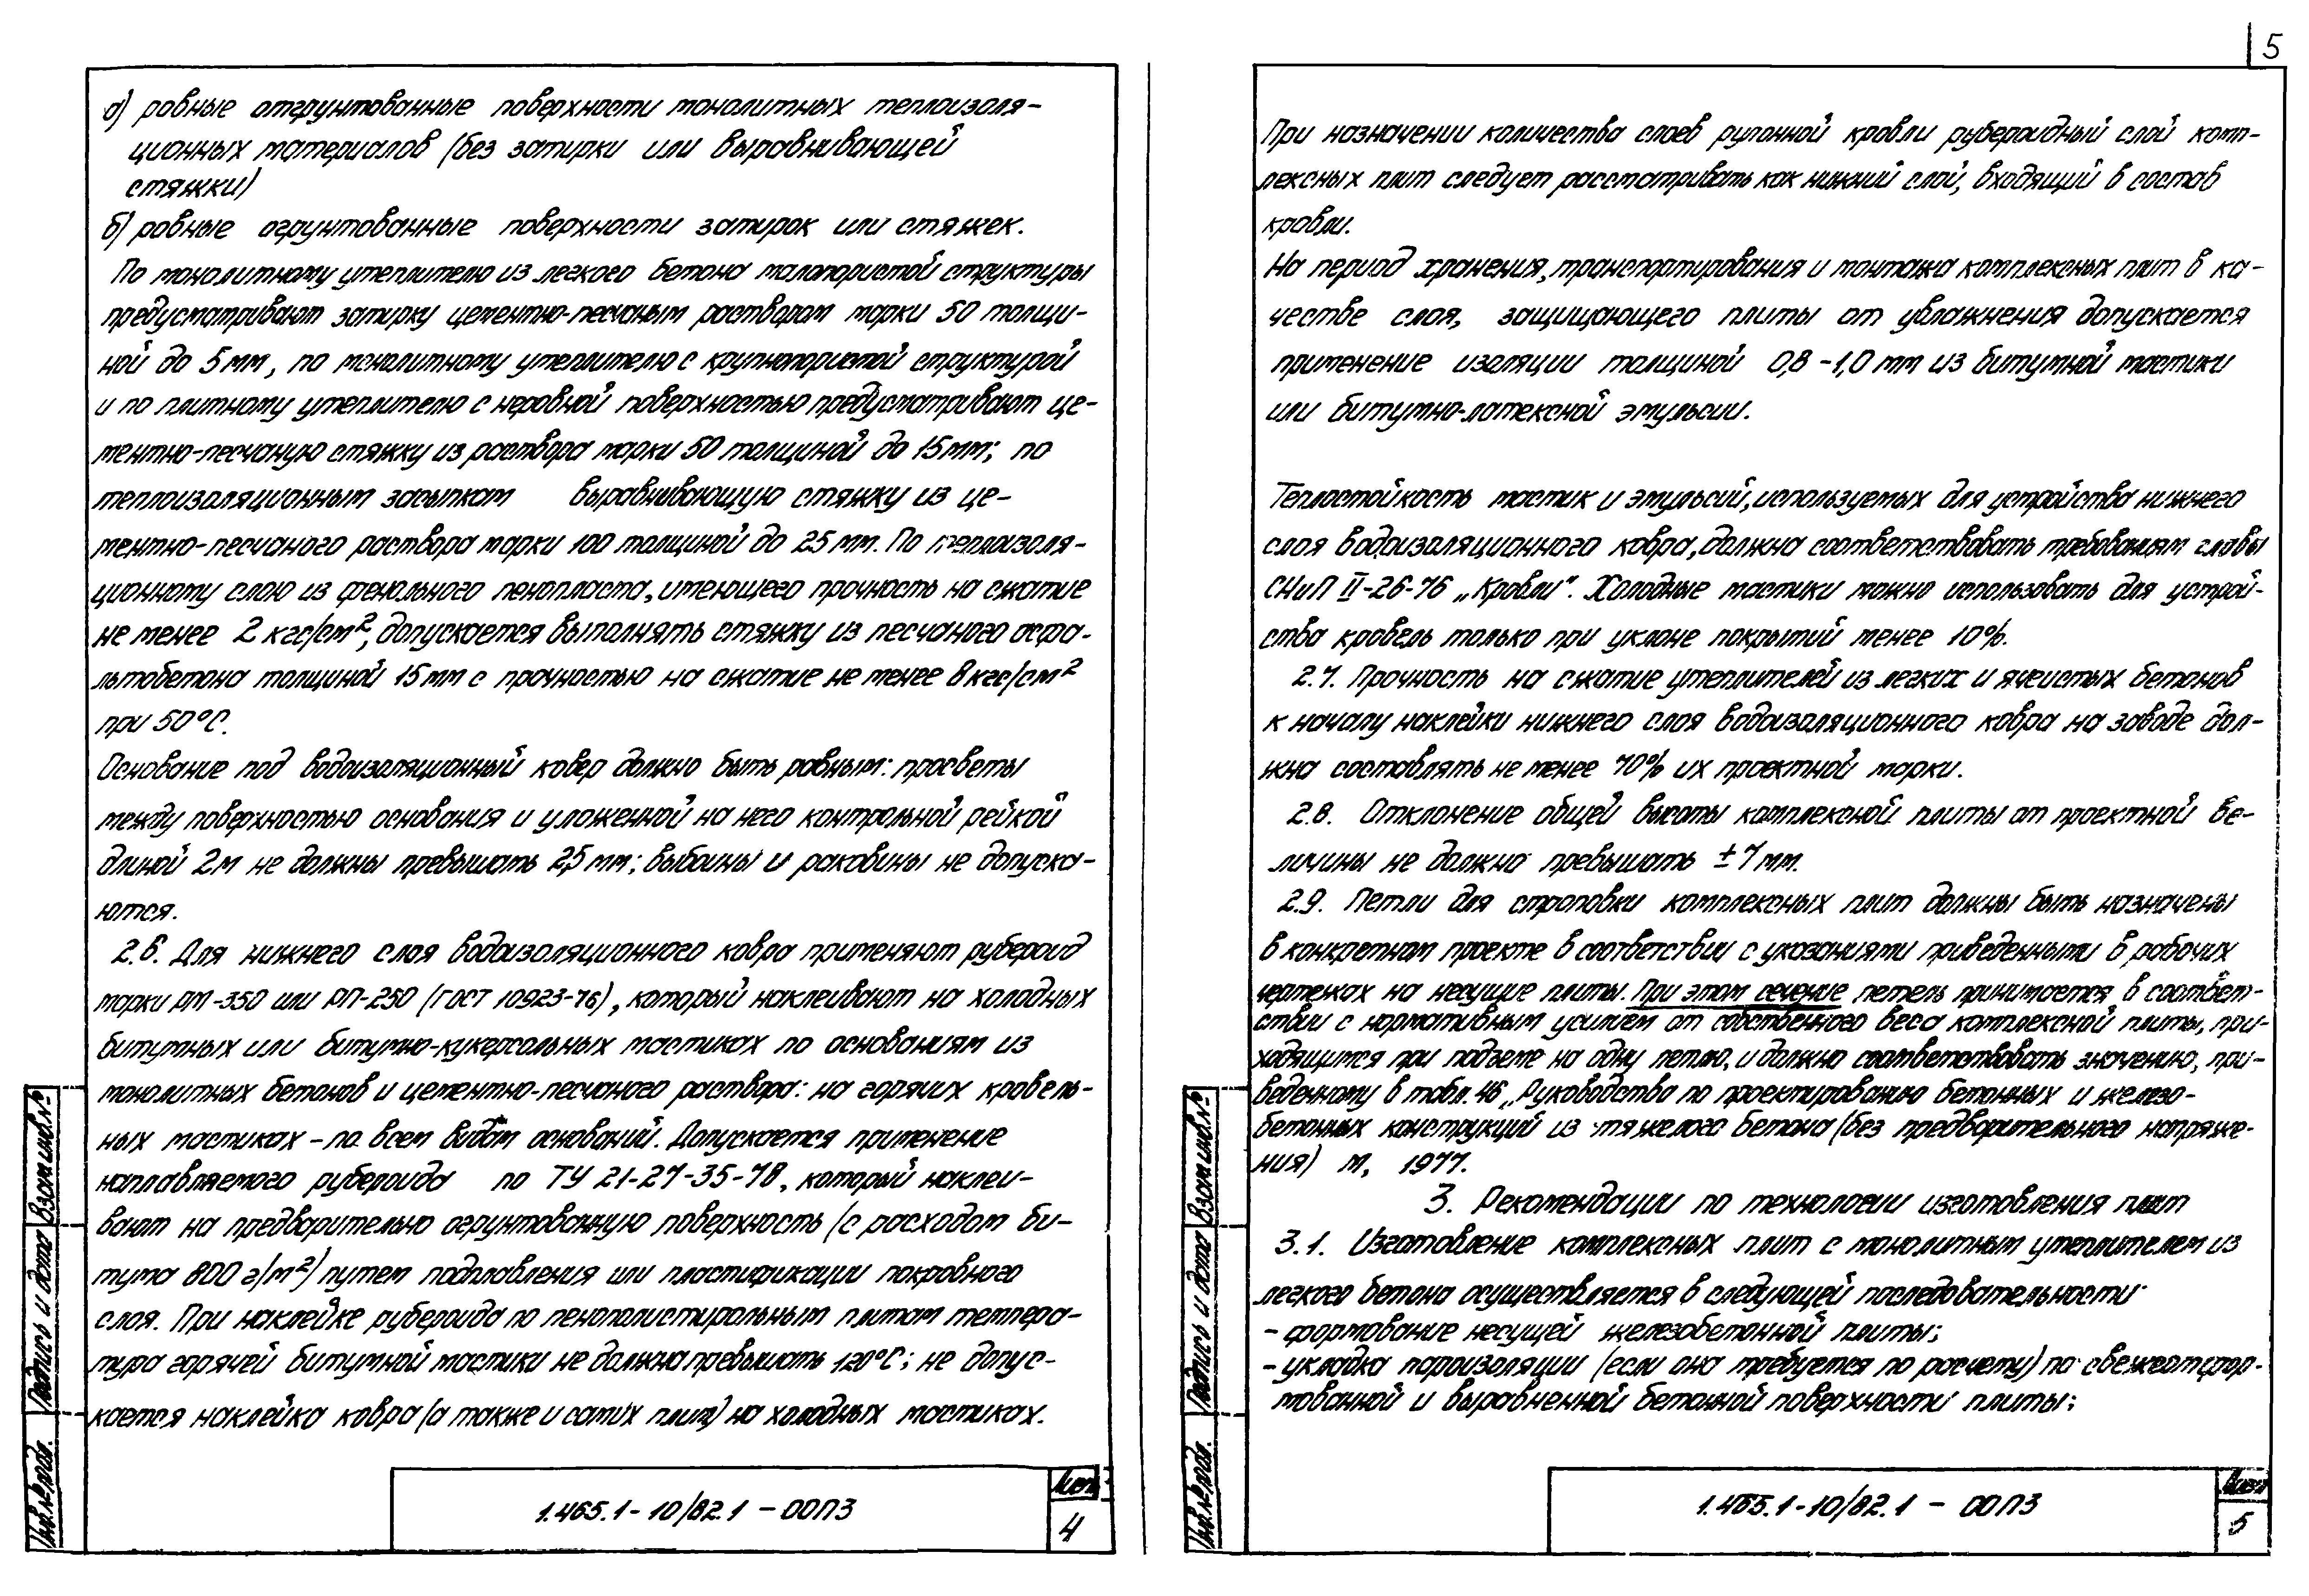 а) ровные отгрунтованные поверхности монолитных теплоизоля-
ционных материалов (без затирки или выравнивающей
стяжки)
б) ровные огрунтованные поверхности затирок или стяжек.
По монолитному утеплителю из легкого бетона малопористой структуры
предусматривают затирку цементно-песчаным раствором марки 50 толщи-
ной до 5 мм, по монолитному утеплителю с крупнопористой структурой
и по плитному утеплителю с неровной поверхностью предусматривают це-
ментно-песчаную стяжку из раствора марки 50 толщиной до 15 мм; по
теплоизоляционным засыпкам выравнивающую стяжку из це-
ментно-песчаного раствора марки 100 толщиной до 25 мм. По теплоизоля-
ционному слою из фенольного пенопласта, имеющего прочность на сжатие
не менее 2 кгс/см², допускается выполнять стяжку из песчаного асфа-
льтобетона толщиной 15 мм с прочностью на сжатие не менее 8 кгс/см²
при 50°С.
Основание под водоизоляционный ковер должно быть ровным: просветы
между поверхностью основания и уложенной на него контрольной рейкой
длиной 2м не должны превышать 2,5 мм; выбоины и раковины не допуска-
ются.
2.6. Для нижнего слоя водоизоляционного ковра применяют рубероид
марки РМ-350 или РП-250 (ГОСТ 10923-76), который наклеивают на холодных
битумных или битумно-кукерсольных мастиках по основаниям из
монолитных бетонов и цементно-песчаного раствора: на горячих кровель-
ных мастиках - по всем видам оснований. Допускается применение
наплавляемого рубероида по ТУ 21-27-35-78, который наклеи-
вают на предварительно огрунтованную поверхность (с расходом би-
тума 800 г/м²) путем подплавления или пластификации покровного
слоя. При наклейке рубероида по пенополистирольным плитам темпера-
тура горячей битумной мастики не должна превышать 120°С; не допус-
кается наклейка ковра (а также и самих плит) на холодных мастиках.
1.465.1-10/82.1 - 00ПЗ
Лист
4
Инв.№ подл.
Подпись и дата
Взам инв.№
5
При назначении количества слоев рулонной кровли рубероидный слой комп-
лексных плит следует рассматривать как нижний слой, входящий в состав
кровли.
На период хранения, транспортирования и монтажа комплексных плит в ка-
честве слоя, защищающего плиты от увлажнения допускается
применение изоляции толщиной 0,8-1,0 мм из битумной мастики
или битумно-латексной эмульсии.
Теплостойкость мастик и эмульсий, используемых для устройства нижнего
слоя водоизоляционного ковра, должна соответствовать требованиям главы
СНиП II-26-76 „Кровли". Холодные мастики можно использовать для устрой-
ства кровель только при уклоне покрытий менее 10%.
2.7. Прочность на сжатие утеплителей из легких и ячеистых бетонов
к началу наклейки нижнего слоя водоизоляционного ковра на заводе дол-
жна составлять не менее 70% их проектной марки.
2.8. Отклонение общей высоты комплексной плиты от проектной ве-
личины не должно превышать ±7 мм.
2.9. Петли для строповки комплексных плит должны быть назначены
в конкретном проекте в соответствии с указаниями приведенными в рабочих
чертежах на несущие плиты. При этом сечение петель принимается в соответ-
ствии с нормативным усилием от собственного веса комплексной плиты, при-
ходящимся при подъеме на одну петлю, и должно соответствовать значению, при-
веденному в табл. 46 „Руководства по проектированию бетонных и железо-
бетонных конструкций из тяжелого бетона (без предварительного напряже-
ния) М, 1977.
3. Рекомендации по технологии изготовления плит
3.1. Изготовление комплексных плит с монолитным утеплителем из
легкого бетона осуществляется в следующей последовательности
- формование несущей железобетонной плиты;
- укладка пароизоляции (если она требуется по расчету) по свежеотфор-
мованной и выравненной бетонной поверхности плиты;
1.465.1-10/82.1 - 00ПЗ
Лист
5
Инв.№ подл.
Подпись и дата
Взам инв.№